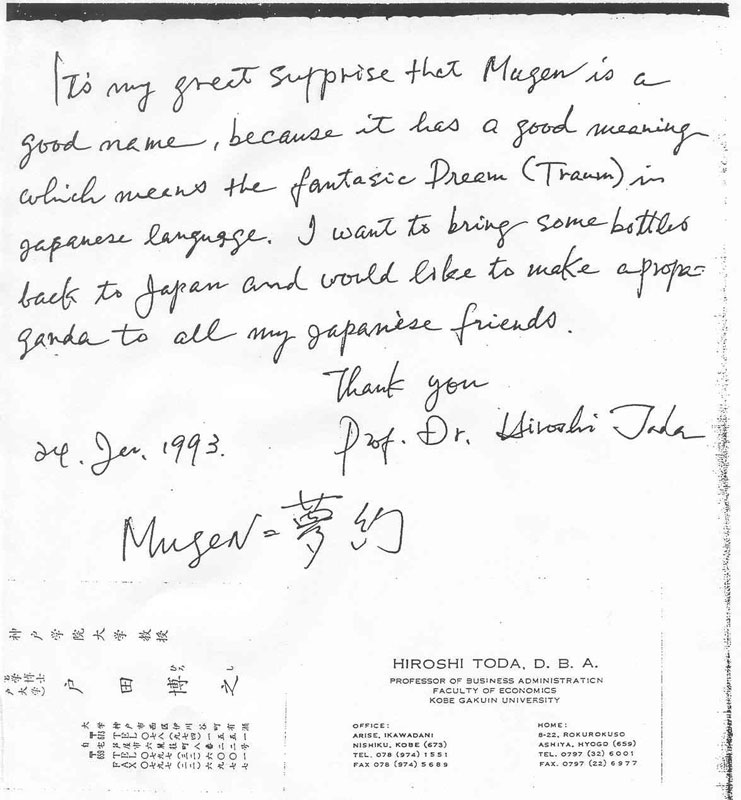 It's my great supprise that Mugen is a
good name, because it has a good meaning
which means the fantasic Dream (Traum) in
japanese language. I want to bring some bottles
back to Japan and would like to make a propa-
ganda to all my japanese friends.
Thank you
24. Jan. 1993. Prof. Dr. Hiroshi Toda
Mugen = 夢約
神戸学院大学教授
戸田博之
ひろ し
HIROSHI TODA, D. B. A.
PROFESSOR OF BUSINESS ADMINISTRATION
FACULTY OF ECONOMICS
KOBE GAKUIN UNIVERSITY
OFFICE:
ARISE, IKAWADANI
NISHIKU, KOBE (673)
TEL. 078 (974) 1551
FAX 078 (974) 5689
HOME:
8-22, ROKUROKUSO
ASHIYA, HYOGO (659)
TEL. 0797 (32) 6001
FAX. 0797 (22) 6977